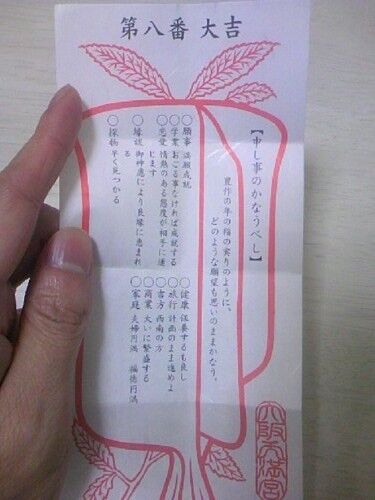 第八番 大吉
【申し事のかなうべし】
豊作の年の稲の実りのように、
どのような願望も思いのままかなう。
○願事 満願成就
○学業 おこる事なければ成就する
○恋愛 情熱のある態度が相手に通
じます
○縁談 御神慮により良縁に恵まれ
る
○探物 早く見つかる
○健康 保養するも良し
○旅行 計画のまま進めよ
○吉方 西南の方
○商業 大いに繁盛する
○家庭 夫婦円満 福徳円満
大阪天満宮